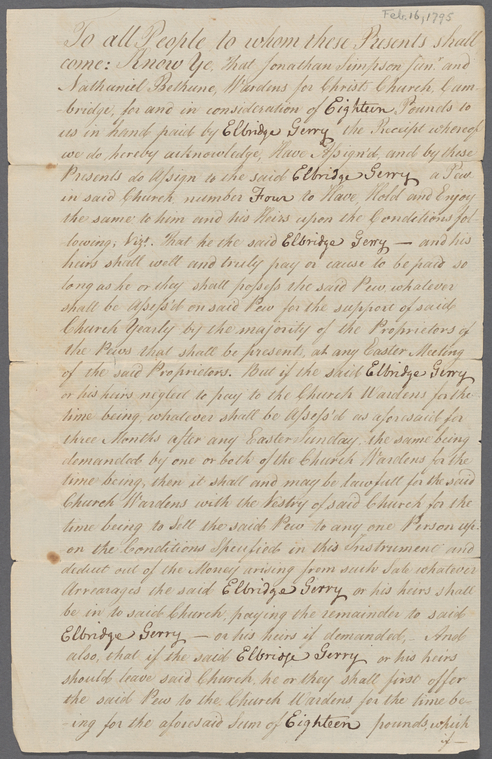 Feb. 16, 1795
To all People to whom these Presents shall
come: Know Ye, that Jonathan Simpson Junr and
Nathaniel Bethune, Wardens for Christ Church, Cam-
bridge, for and in consideration of Eighteen Pounds to
us in hand paid by Elbridge Gerry the Receipt whereof
we do, hereby acknowledge, Have Assign'd, and by these
Presents do Assign to the said Elbridge Gerry a Pew
in said Church number Four to Have, Hold and Enjoy
the same to him and his Heirs upon the Conditions fol-
lowing; Vizt. That he the said Elbridge Gerry — and his
heirs shall well and truly pay or cause to be paid so
long as he or they shall possess the said Pew, whatever
shall be Assess'd on said Pew for the support of said
Church Yearly by the majority of the Proprietors of
the Pews that shall be present, at any Easter Meeting
of the said Proprietors. But if the said Elbridge Gerry
or his heirs neglect to pay to the Church Wardens for the
time being, whatever shall be Assess'd as aforesaid for
three Months after any Easter Sunday, the same being
demanded by one or both of the Church Wardens for the
time being, then it shall and may be lawfull for the said
Church Wardens with the Vestry of said Church for the
time being to sell the said Pew to any one Person up-
on the Conditions Specified in this Instrument and
deduct out of the Money arising from such Sale whatever
Arrearages the said Elbridge Gerry or his heirs shall
be in to said Church, paying the remainder to said
Elbridge Gerry — or his heirs if demanded, — And
also, that if the said Elbridge Gerry or his heirs
should leave said Church, he or they shall first offer
the said Pew to the Church Wardens for the time be-
-ing for the aforesaid Sum of Eighteen pounds, which
if —